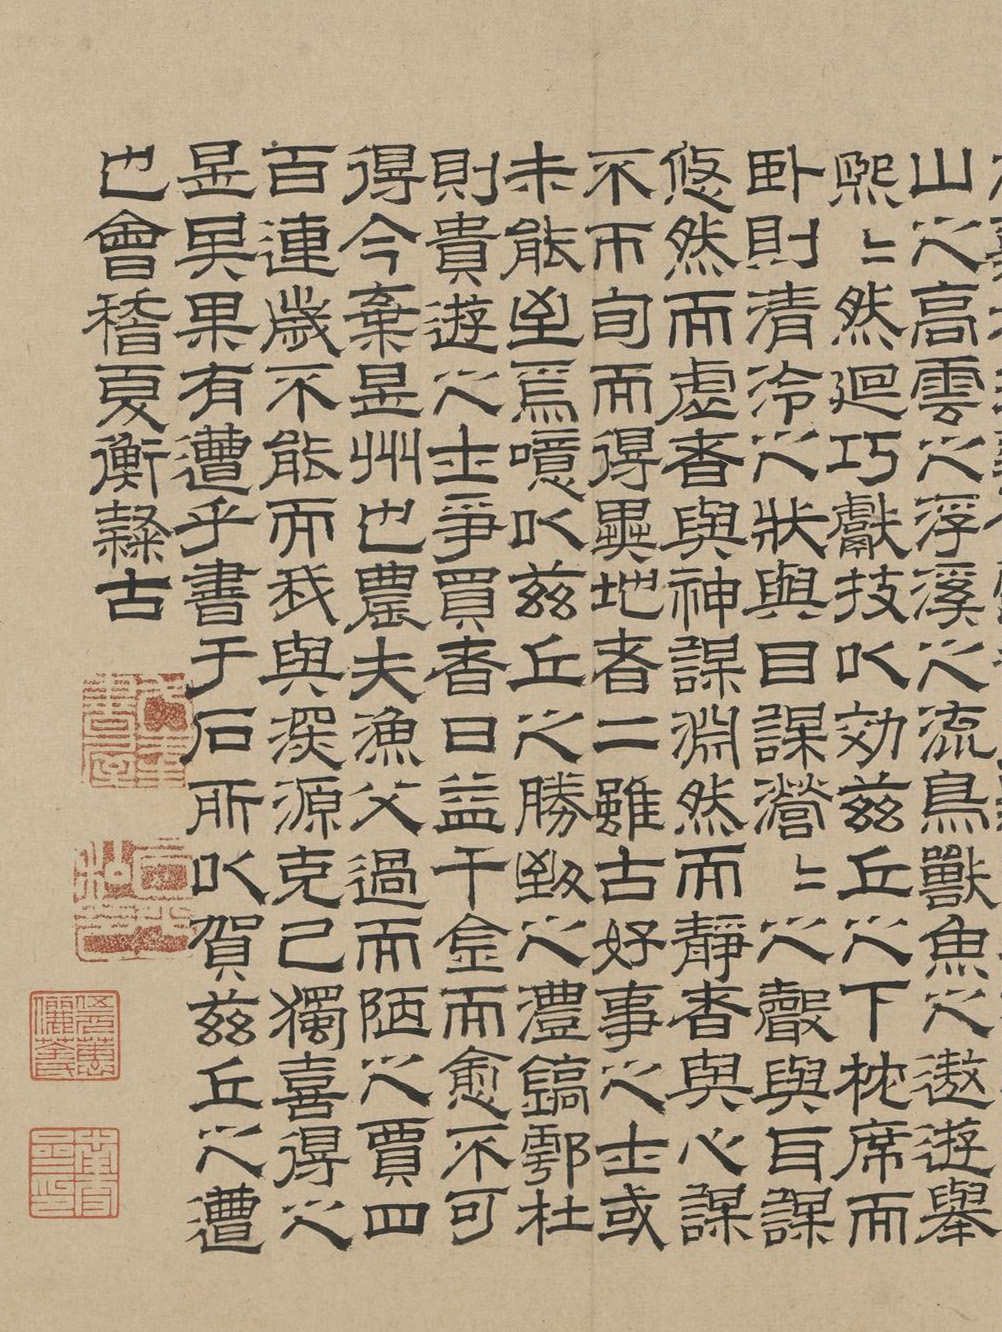 山之高雲之浮溪之流鳥獸魚之遨遊舉
熙〻然迴巧獻技以効茲丘之下枕席而
卧則清泠之狀與目謀瀯〻之聲與耳謀
悠然而虛者與神謀淵然而靜者與心謀
不帀旬而得異地者二雖古好事之士或
未能至焉噫以茲丘之勝致之灃鎬鄠杜
則貴遊之士爭買者日益千金而愈不可
得今棄是州也農夫漁父過而陋之賈四
百連歲不能而我與深源克己獨喜得之
是其果有遭乎書于石所以賀茲丘之遭
也會稽夏衡隸古